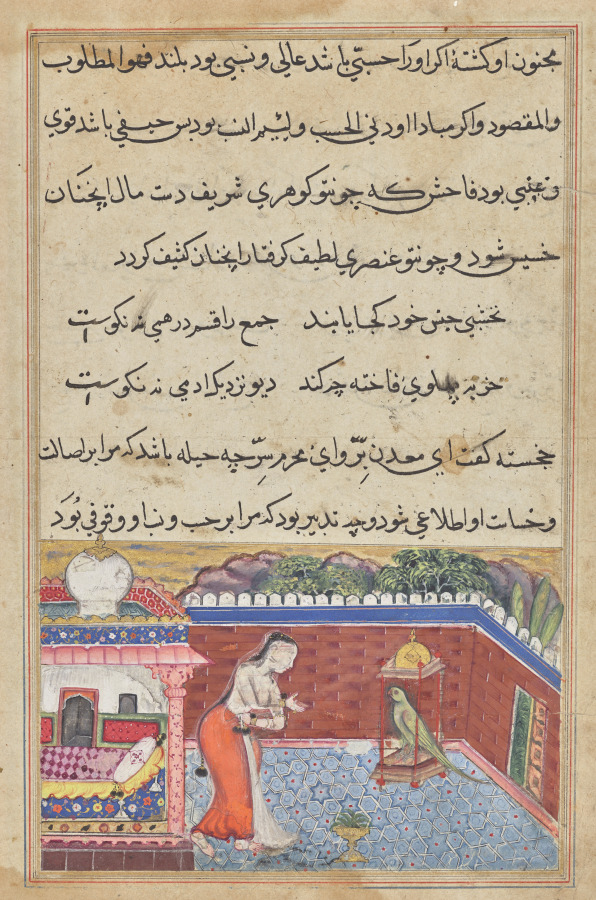 مجنون او گشتهٔ اگر او را حسبی باشد عالی و نسبی بود بلند فهو المطلوب
والمقصود و اگر مبادا او دنی الحسب و لئیم النسب بود بس حیفی باشد قوی
و عیبی بود فاحش که چو تو کوهری شریف دست مال اینچنان
خسیس شود و چو تو عنصری لطیف کرفتار اینچنان کثیف کردد
نخشبی جنس خود کجا یابند جمع را قسم درهمی نه نکوست
خر به پهلوی فاخته چه کند دیو نزدیک ادمی نه نکوست
خجسته کفت ای معدن برّ و ای محرم سرّ چه حیله باشد که مرا بر اصالت
و خساست او اطلاعی شود و چه تدبیر بود که مرا بر حسب و نسب او وقوفی بُوَد